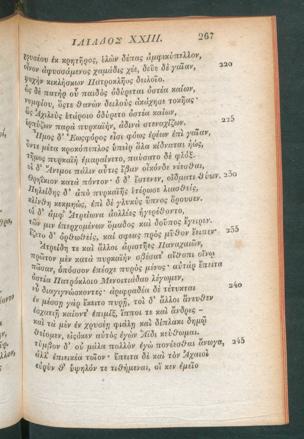 ΙΛΙΑΔΟΣ XXIII. 267
χρυσέου ἐκ κρητῆρος, ἑλὼν δέπας ἀμφικύπελλον,
οἶνον ἀφυσσάμενος χαμάδις χέε, δεῦε δὲ γαῖαν, 220
ψυχὴν κικλήσκων Πατροκλῆος δειλοῖο.
ὡς δὲ πατὴρ οὗ παιδὸς ὀδύρεται ὀστέα καίων,
νυμφίου, ὅςτε θανὼν δειλοὺς ἀκάχησε τοκῆας·
ὣς Ἀχιλεὺς ἑτάροιο ὀδύρετο ὀστέα καίων,
ἑρπύζων παρὰ πυρκαϊήν, ἀδινὰ στεναχίζων. 225
Ἦμος δ' Ἑωςφόρος εἶσι φόως ἐρέων ἐπὶ γαῖαν,
ὅντε μέτα κροκόπεπλος ὑπεὶρ ἅλα κίδναται ἠώς,
τῆμος πυρκαϊὴ ἐμαραίνετο, παύσατο δὲ φλόξ.
οἱ δ' Ἄνεμοι πάλιν αὖτις ἔβαν οἶκόνδε νέεσθαι,
Θρηΐκιον κατὰ πόντον· ὁ δ' ἔστενεν, οἴδματι θύων. 230
Πηλείδης δ' ἀπὸ πυρκαϊῆς ἑτέρωσε λιασθεὶς,
κλίνθη κεκμηώς, ἐπὶ δὲ γλυκὺς ὕπνος ὄρουσεν.
οἱ δ' ἀμφ' Ἀτρείωνα ἀολλέες ἠγερέθοντο,
τῶν μιν ἐπερχομένων ὅμαδος καὶ δοῦπος ἔγειρεν.
ἕζετο δ' ὀρθωθείς, καί σφεας πρὸς μῦθον ἔειπεν· 235
Ἀτρείδη τε καὶ ἄλλοι ἀριστῆες Παναχαιῶν,
πρῶτον μὲν κατὰ πυρκαϊὴν σβέσατ' αἴθοπι οἴνῳ
πᾶσαν, ὁπόσσον ἐπέσχε πυρὸς μένος· αὐτὰρ ἔπειτα
ὀστέα Πατρόκλοιο Μενοιτιάδαο λέγωμεν,
εὖ διαγιγνώσκοντες· ἀριφραδέα δὲ τέτυκται 240
ἐν μέσσῃ γὰρ ἔκειτο πυρῇ, τοὶ δ' ἄλλοι ἄνευθεν
ἐσχατιῇ καίοντ' ἐπιμίξ, ἵπποι τε καὶ ἄνδρες –
καὶ τὰ μὲν ἐν χρυσέῃ φιάλῃ καὶ δίπλακι δημῷ
θείομεν, εἰςόκεν αὐτὸς ἐγὼν Ἄϊδι κεύθωμαι.
τύμβον δ' οὐ μάλα πολλὸν ἐγὼ πονέεσθαι ἄνωγα, 245
ἀλλ' ἐπιεικέα τοῖον· ἔπειτα δὲ καὶ τὸν Ἀχαιοὶ
εὐρύν θ' ὑψηλόν τε τιθήμεναι, οἵ κεν ἐμεῖο